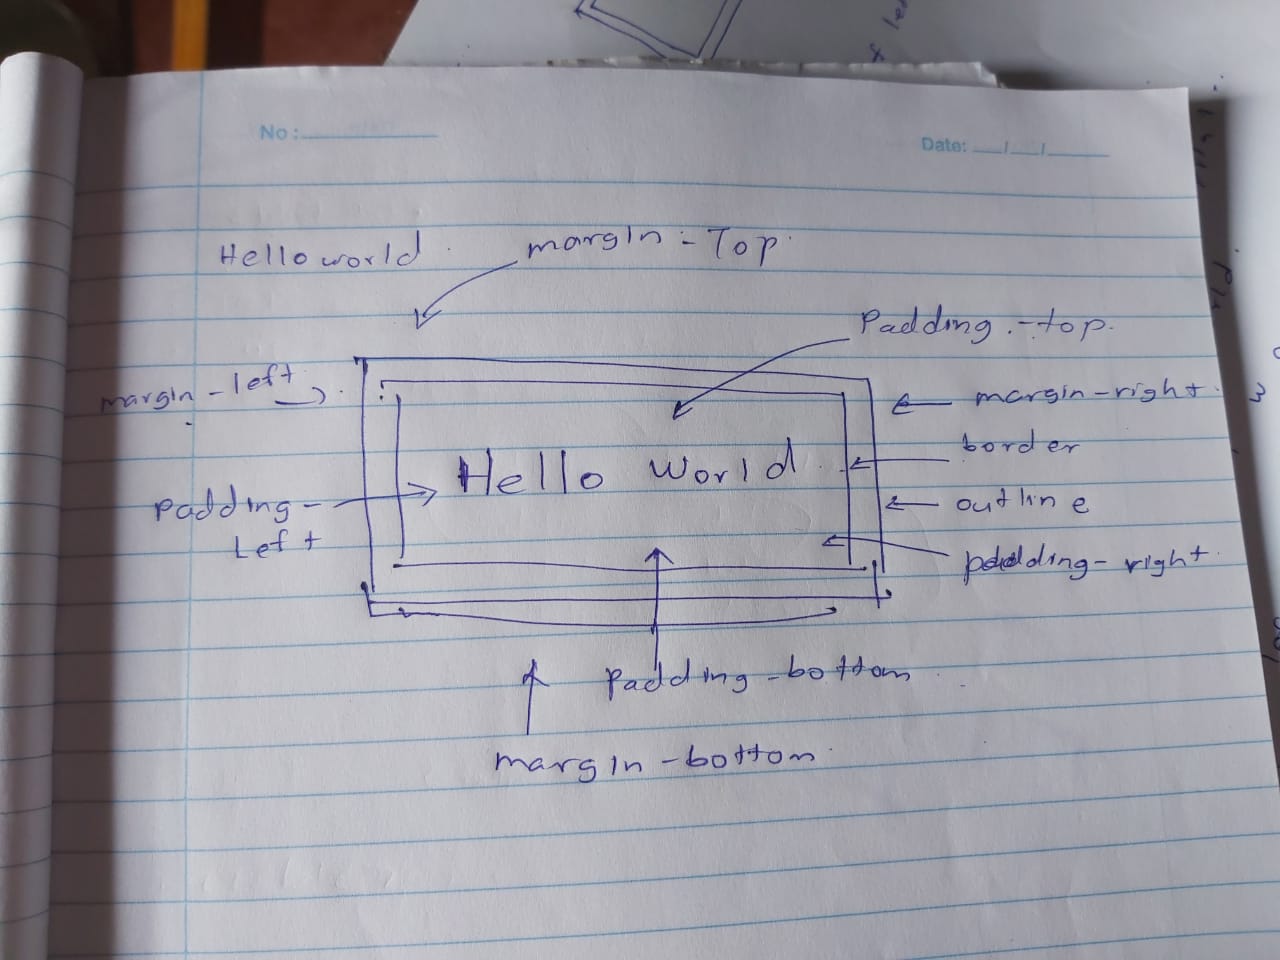 No:
Date: __/__/____
Hello world
margin - Top
Padding - top.
margin - left
margin - right
border
Hello World
Padding -
Left
outline
padding - right
Padding - bottom
margin - bottom